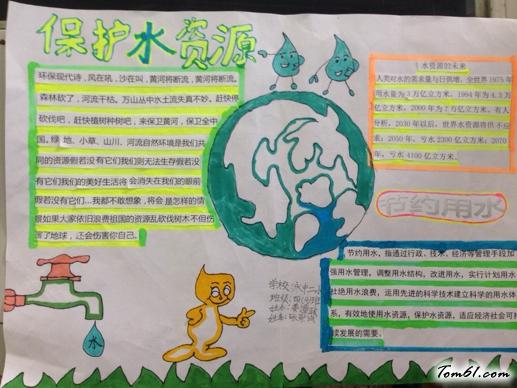 保护水资源
环保现代诗，风在吼，沙在叫，黄河将断流，黄河将断流。
森林砍了，河流干枯。万山丛中水土流失真不妙。赶快停
砍伐吧，赶快植树种树吧，来保卫黄河，保卫全中
国。绿 地、小草、山川、河流自然环境是我们共
同的资源假若没有它们我们则无法生存假若没
有它们我们的美好生活将 会消失在我们的眼前
假若没有它们…我都不敢想象，将会 是怎样的情
景如果大家依旧浪费祖国的资源乱砍伐树木不但伤
害了地球，还会伤害你自己。
水资源的未来
人类对水的需求量与日俱增，全世界 1975 年
用水量为 3 万亿立方米，1994 年为 4.3 万
亿立方米，2000 年为 7 万亿立方米，有人
分析，2030 年以后，世界水资源将供不应
求：2050 年，亏水 2300 亿立方米；2070
年，亏水 4100 亿立方米。
节约用水
节约用水，指通过行政、技术、经济等管理手段加
强用水管理，调整用水结构，改进用水，实行计划用水
杜绝用水浪费，运用先进的科学技术建立科学的用水体
系，有效地使用水资源，保护水资源，适应经济社会可持
续发展的需要。
学校:
班级:
姓名:
水
Tom61.com